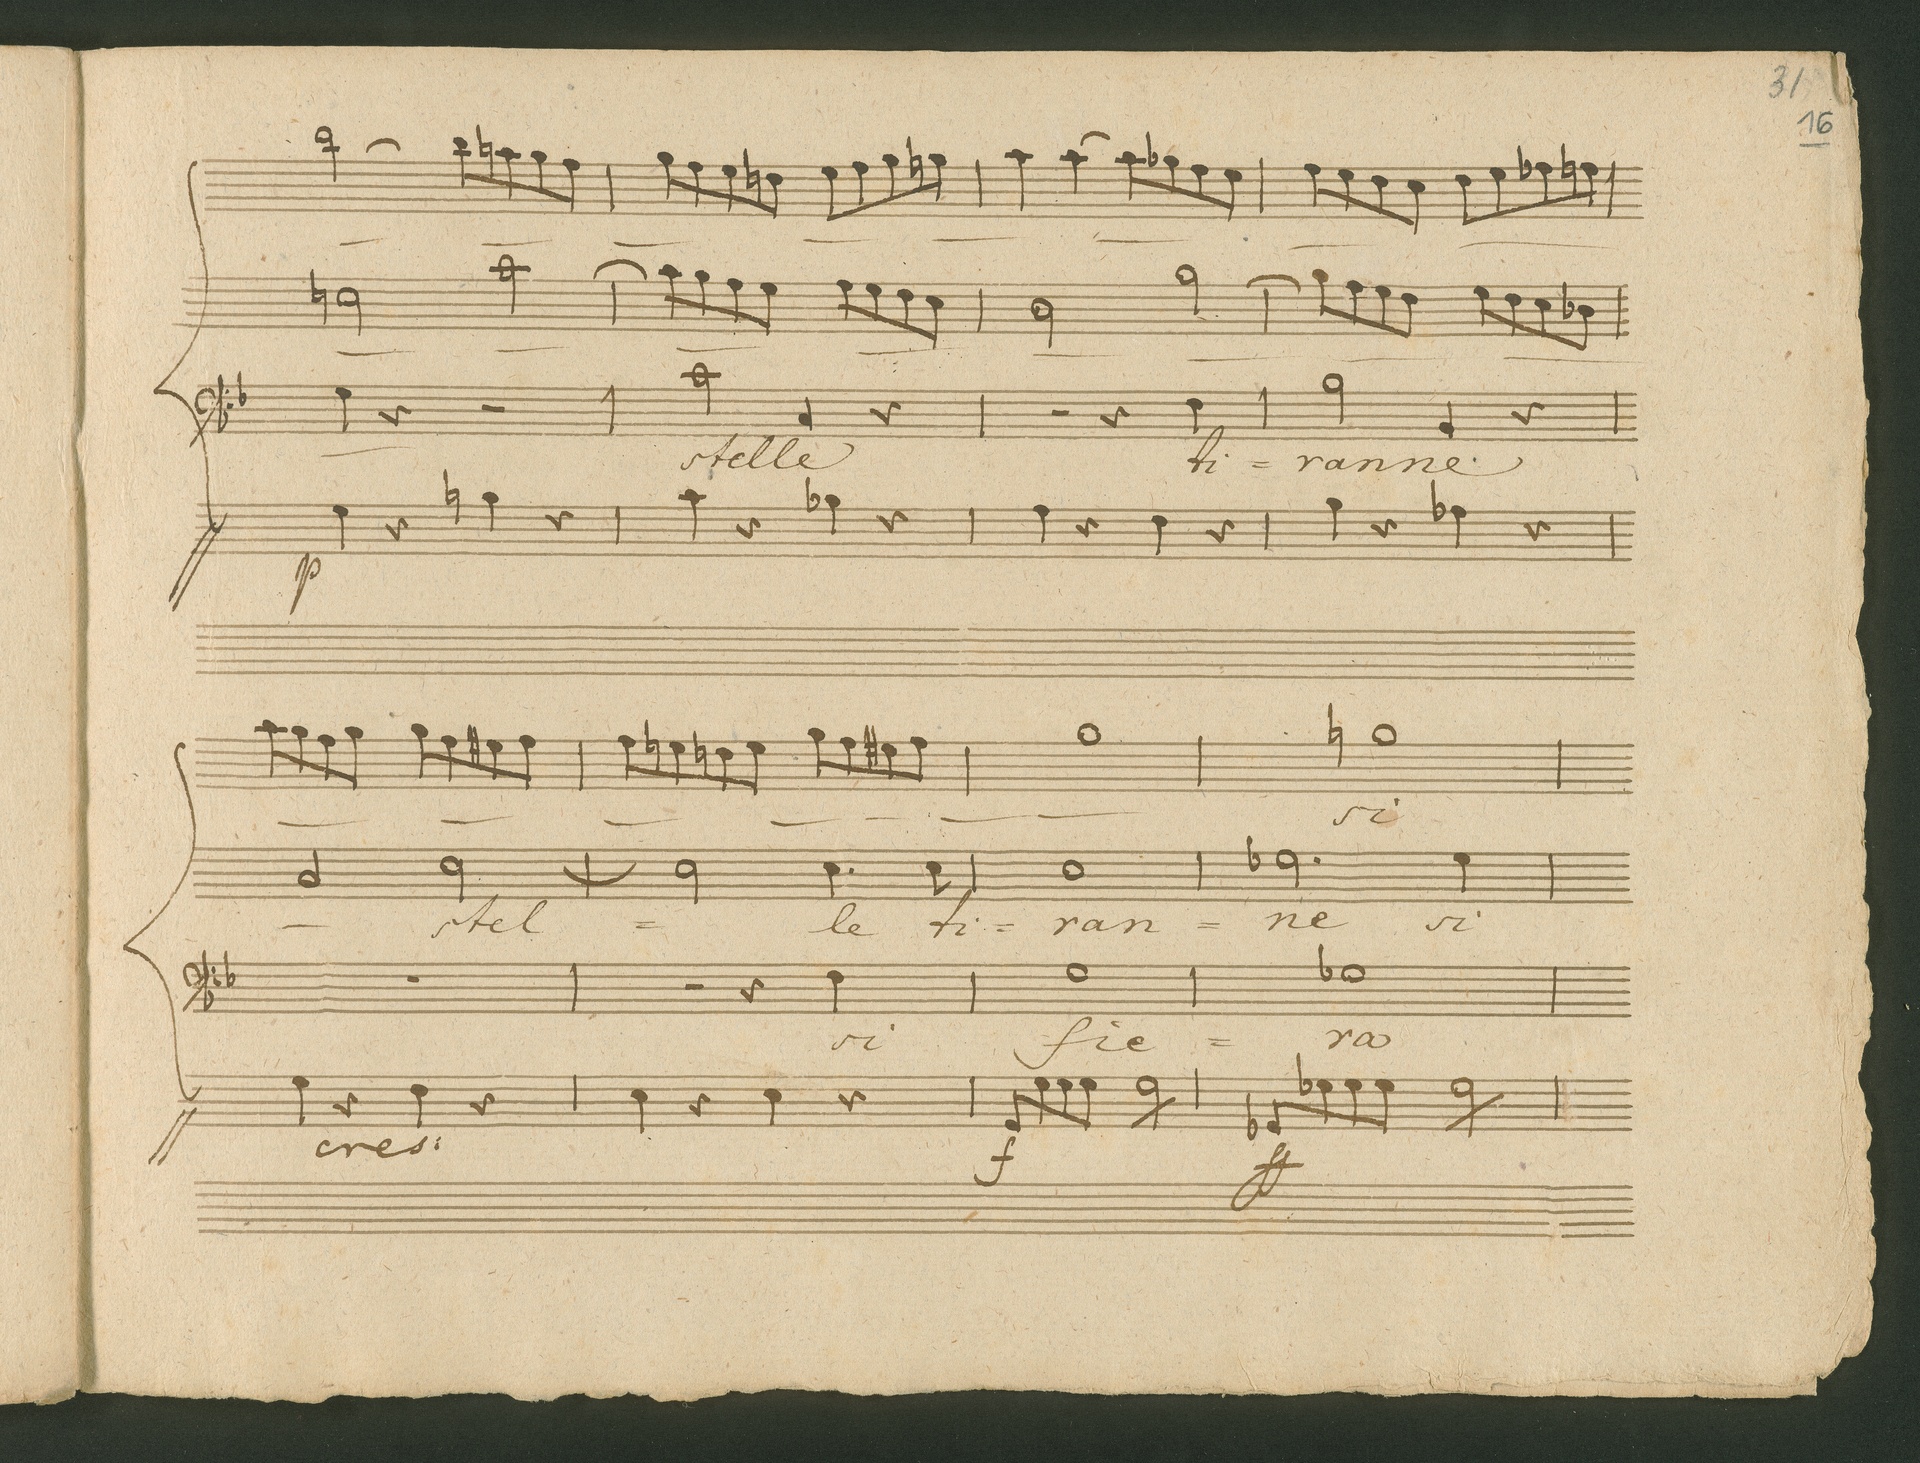 31
16
stelle ti = ranne
p
si
stel = le ti = ran = ne si
si fie = ra
cres:
f ff